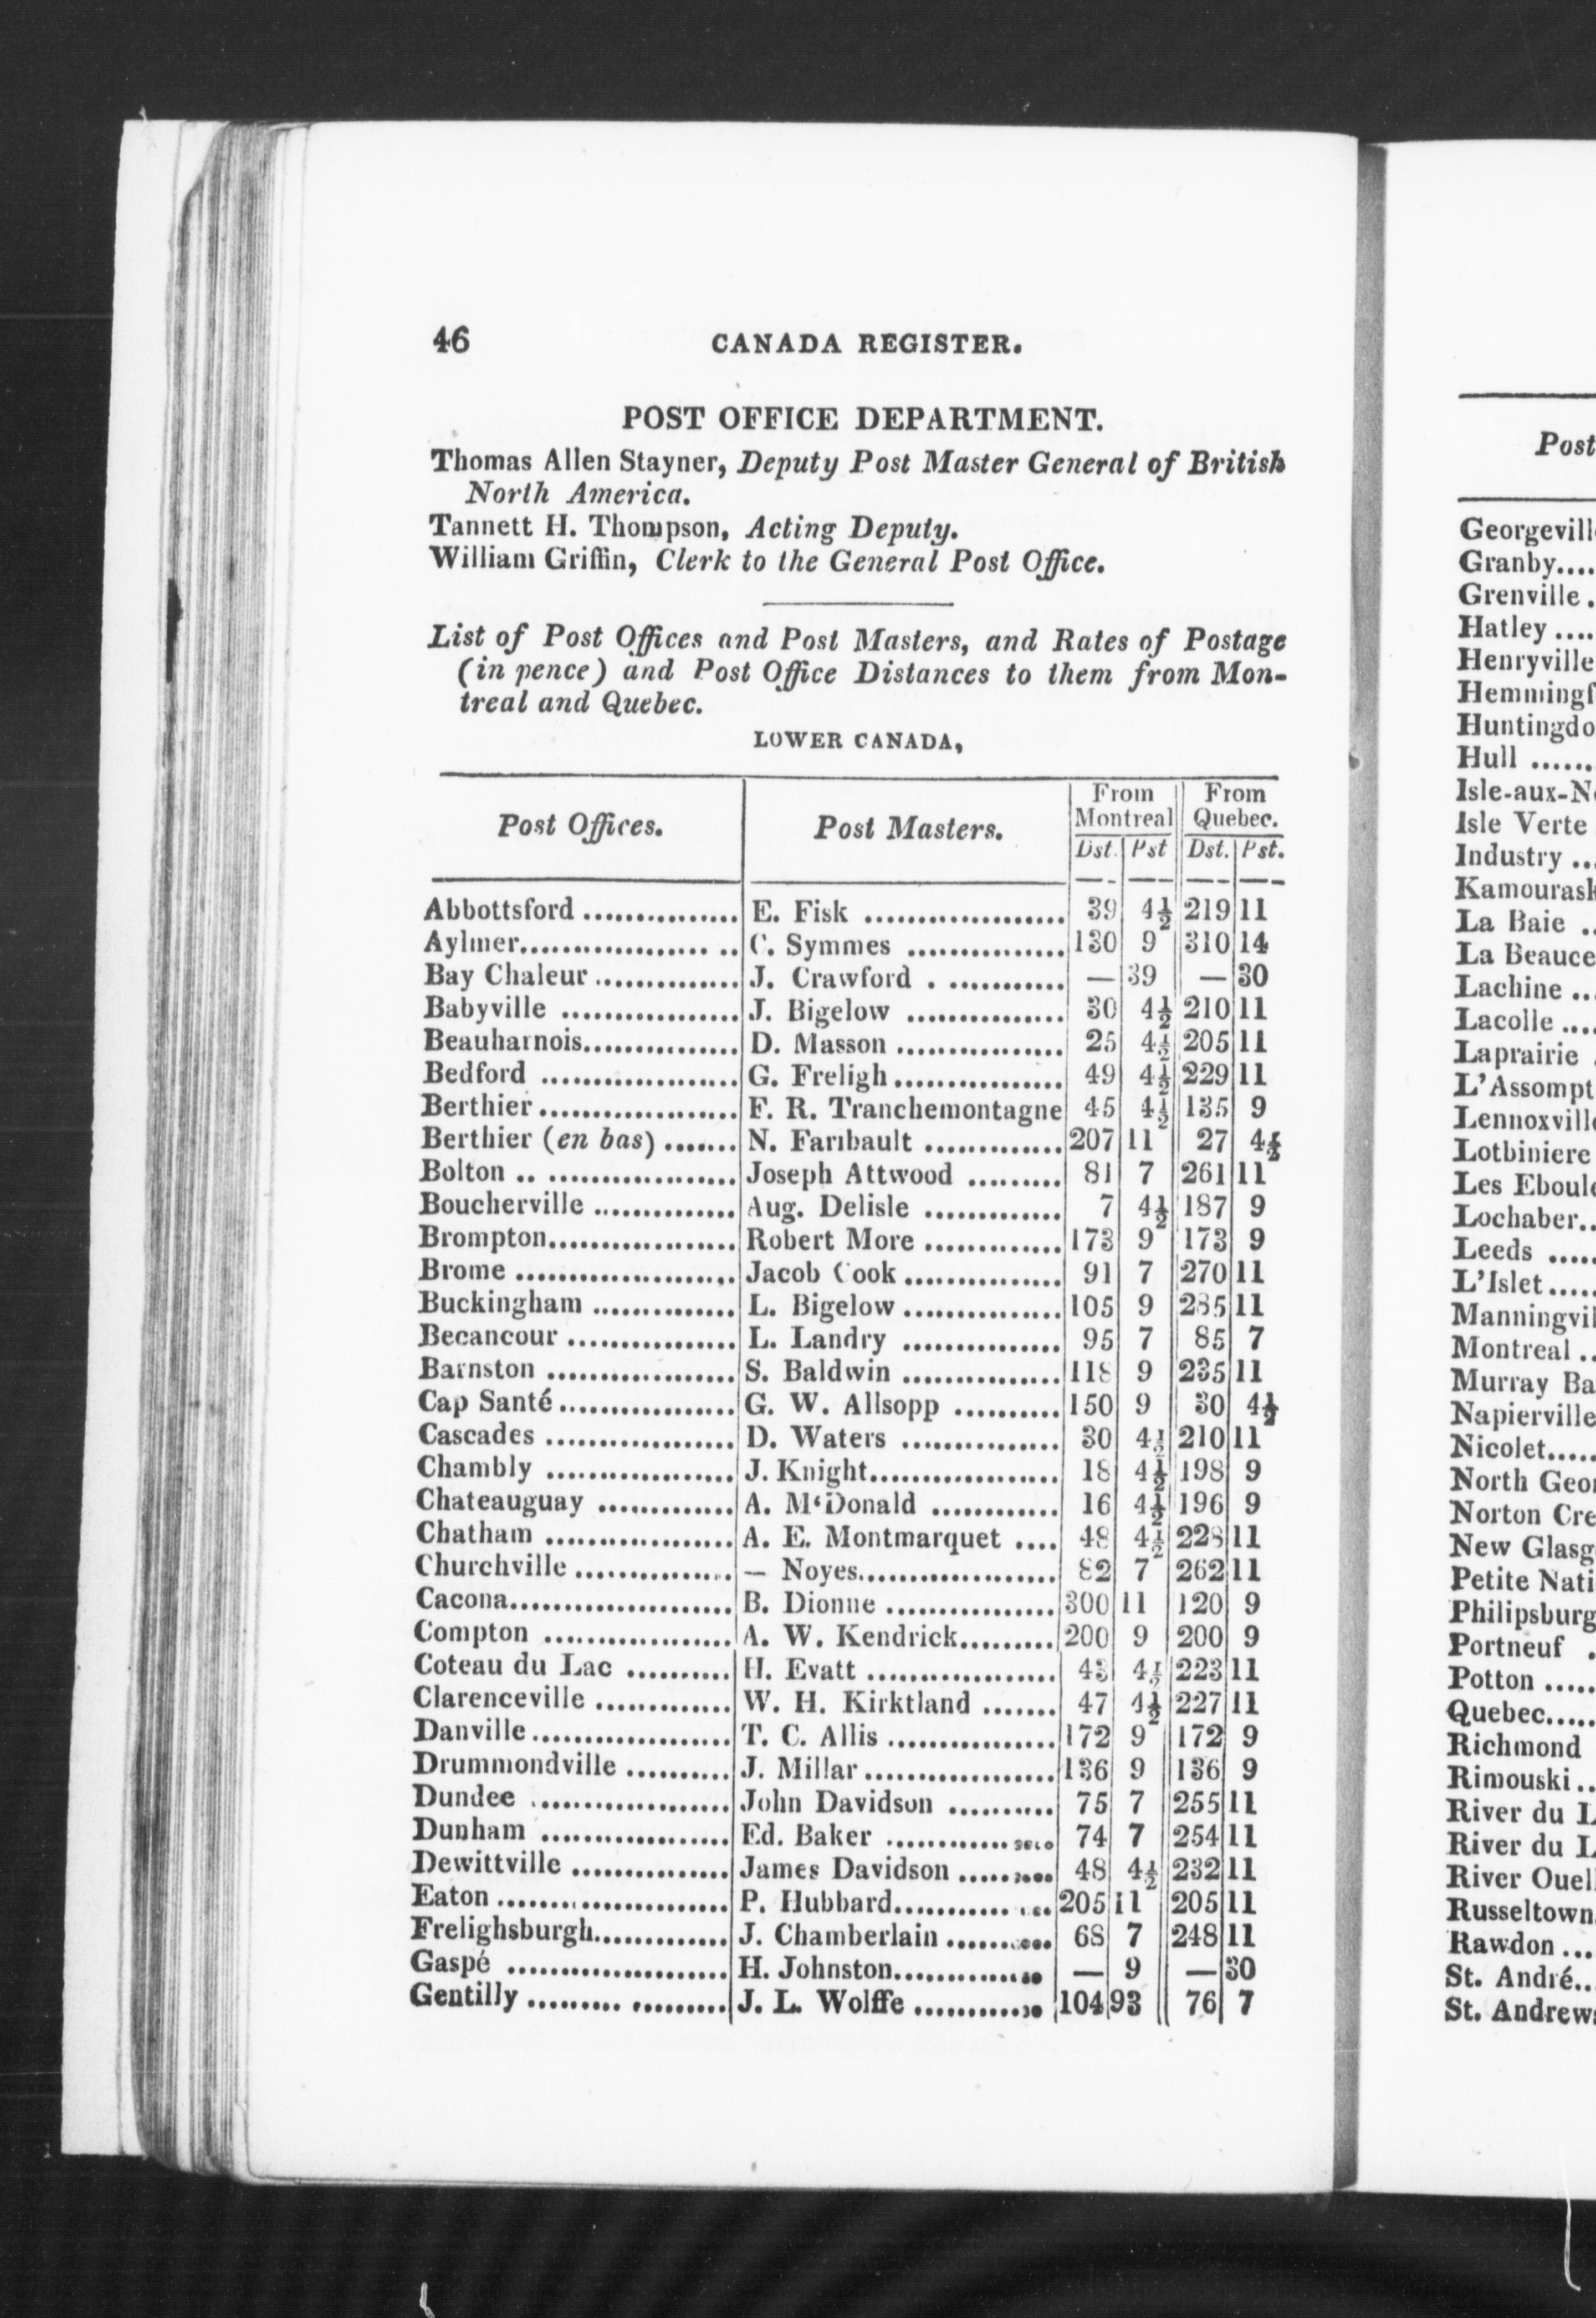 46 CANADA REGISTER.
POST OFFICE DEPARTMENT.
Thomas Allen Stayner, Deputy Post Master General of British
North America.
Tannett H. Thompson, Acting Deputy.
William Griffin, Clerk to the General Post Office.
List of Post Offices and Post Masters, and Rates of Postage
(in pence) and Post Office Distances to them from Mon-
treal and Quebec.
LOWER CANADA,
Post Offices. Post Masters. From Montreal From Quebec.
Dst. Pst Dst. Pst.
Abbottsford ............... E. Fisk .................... 39 4½ 219 11
Aylmer.................. .. C. Symmes ................ 130 9 310 14
Bay Chaleur .............. J. Crawford . ........... — 39 — 30
Babyville ................. J. Bigelow ................ 30 4½ 210 11
Beauharnois............... D. Masson ................ 25 4½ 205 11
Bedford ................... G. Freligh................. 49 4½ 229 11
Berthier................... F. R. Tranchemontagne 45 4½ 135 9
Berthier (en bas) ....... N. Faribault ............. 207 11 27 4½
Bolton .. .................. Joseph Attwood ......... 81 7 261 11
Boucherville .............. Aug. Delisle ............. 7 4½ 187 9
Brompton.................. Robert More ............. 173 9 173 9
Brome ..................... Jacob Cook............... 91 7 270 11
Buckingham .............. L. Bigelow ............... 105 9 285 11
Becancour ................ L. Landry ............... 95 7 85 7
Barnston .................. S. Baldwin ............... 118 9 235 11
Cap Santé................. G. W. Allsopp .......... 150 9 30 4½
Cascades .................. D. Waters ............... 30 4½ 210 11
Chambly .................. J. Knight.................. 18 4½ 198 9
Chateauguay ............. A. M‘Donald ............ 16 4½ 196 9
Chatham .................. A. E. Montmarquet .... 48 4½ 228 11
Churchville ............... — Noyes................... 82 7 262 11
Cacona..................... B. Dionne ................ 300 11 120 9
Compton .................. A. W. Kendrick......... 200 9 200 9
Coteau du Lac .......... H. Evatt .................. 43 4½ 223 11
Clarenceville ............. W. H. Kirktland ....... 47 4½ 227 11
Danville................... T. C. Allis ................ 172 9 172 9
Drummondville .......... J. Millar................... 136 9 136 9
Dundee ................... John Davidson .......... 75 7 255 11
Dunham .................. Ed. Baker ................ 74 7 254 11
Dewittville ............... James Davidson ......... 48 4½ 232 11
Eaton ...................... P. Hubbard.............. 205 11 205 11
Frelighsburgh............. J. Chamberlain .......... 68 7 248 11
Gaspé ..................... H. Johnston.............. — 9 — 30
Gentilly ......... ......... J. L. Wolffe ............ 104 93 76 7
Post
Granby....
Grenville.
Hatley ....
Henryville
Hull ......
Isle Verte
Industry ...
La Baie ..
La Beauce
Lachine ...
Lacolle ....
Laprairie
Lotbiniere
Lochaber..
Leeds .....
L'Islet.....
Montreal ..
Napierville
Nicolet.....
Portneuf .
Potton .....
Quebec.....
Richmond
Rimouski..
River du
River du
Russeltown
Rawdon ...
St. André..